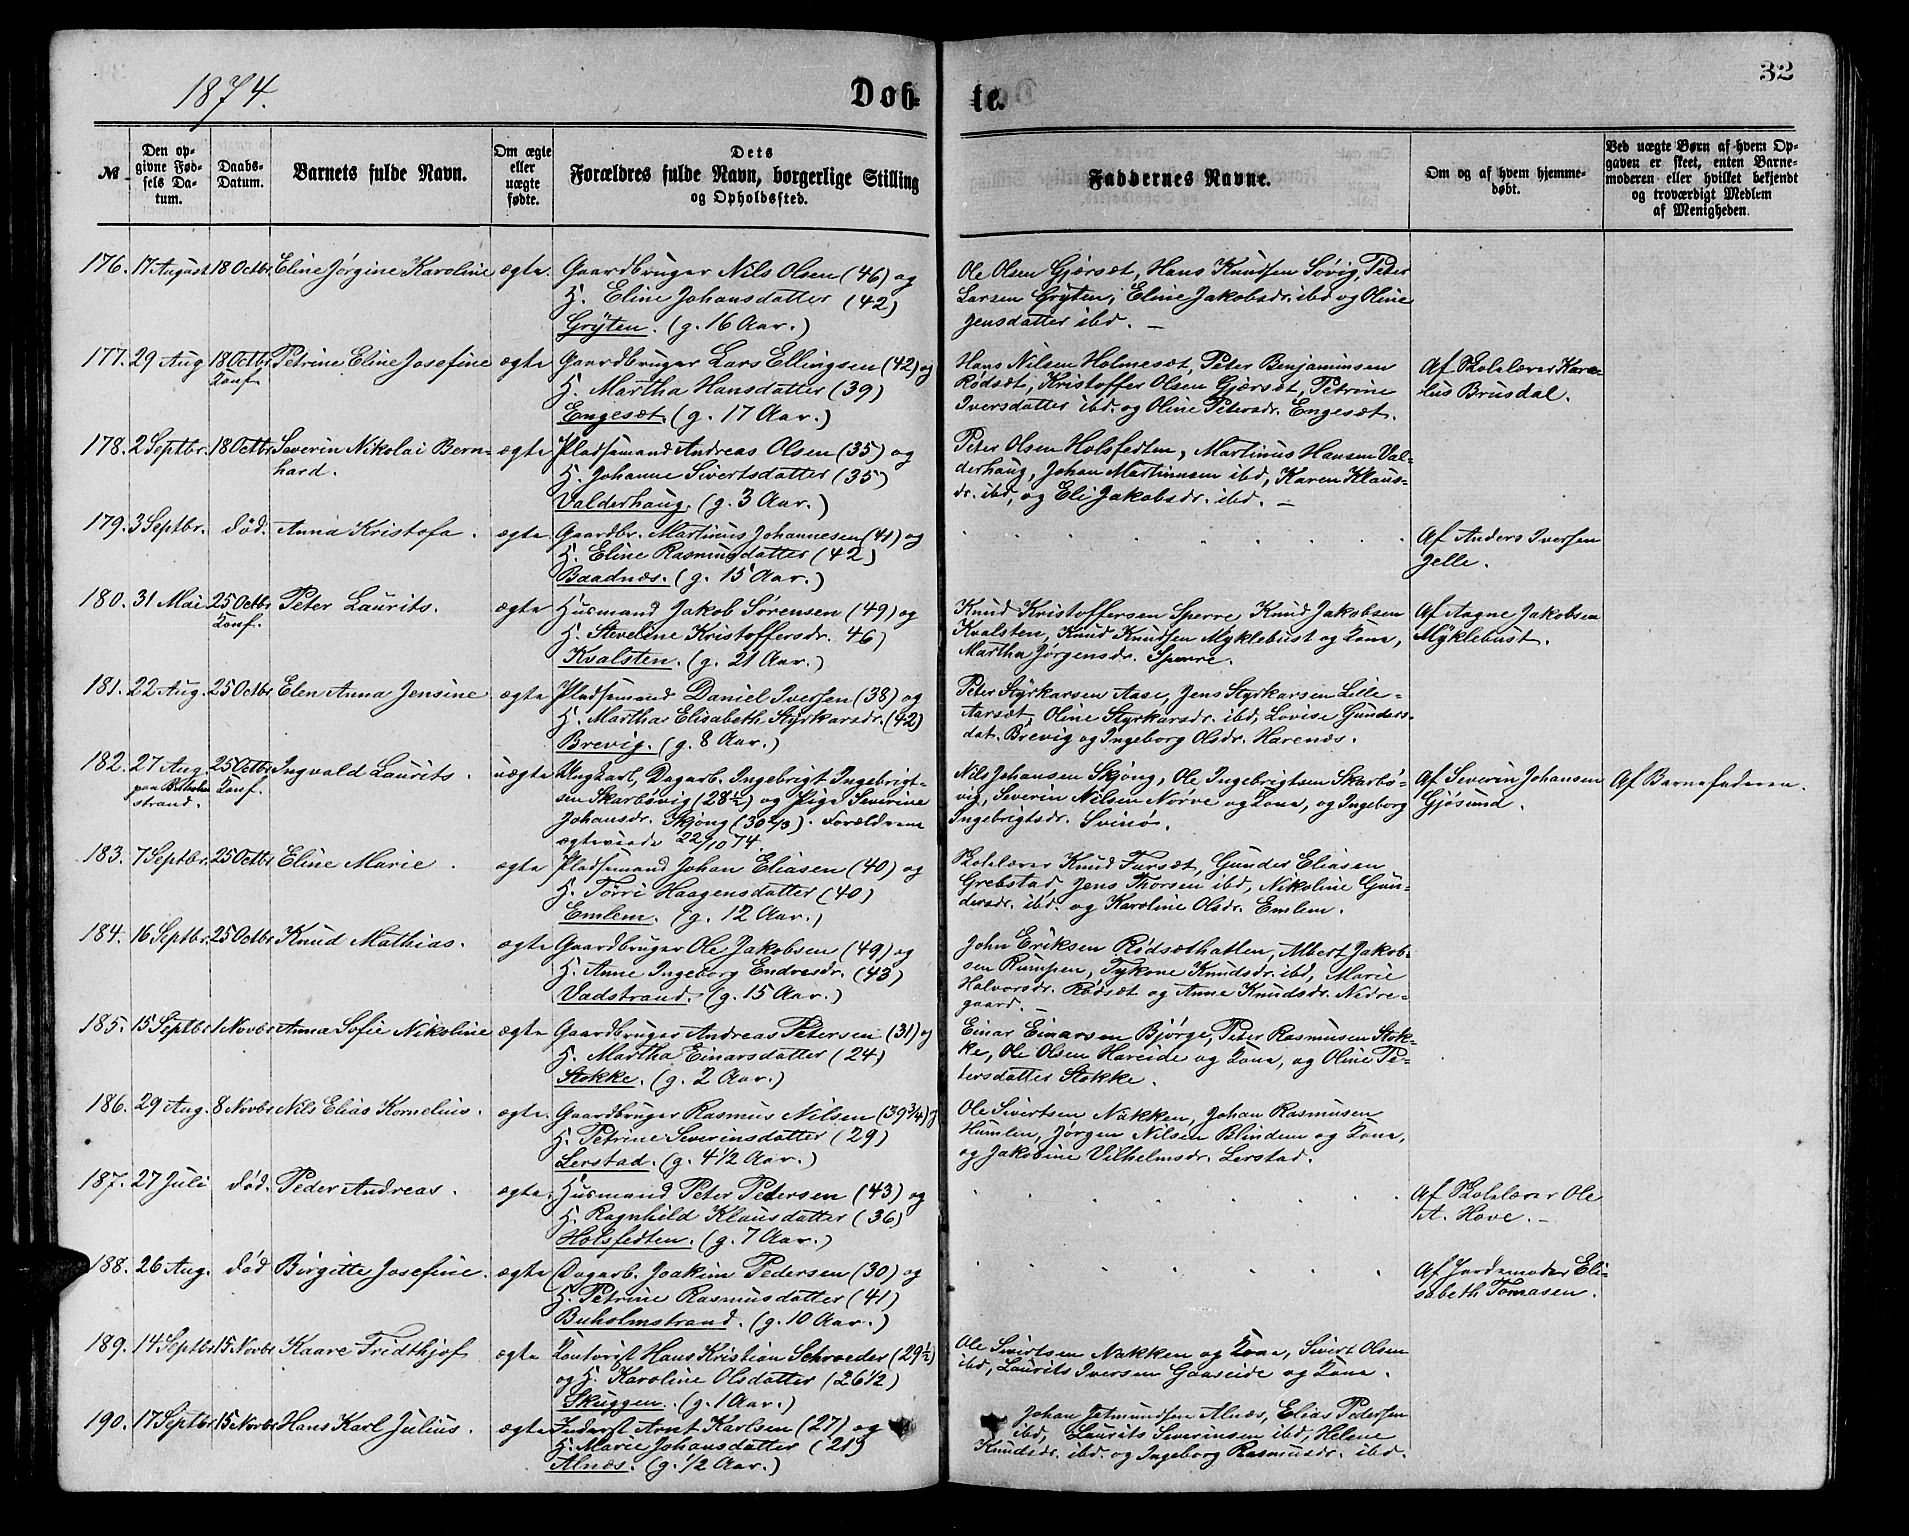 1874.
Døb-
te.
32
№
Den op-
givne Fød-
sels Da-
tum.
Daabs-
Datum.
Barnets fulde Navn.
Om ægte
eller
uægte
fødte.
Dets
Forældres fulde Navn, borgerlige Stilling
og Opholdssted.
Faddernes Navne.
Om og af hvem hjemme-
døbt.
Ved uægte Børn af hvem Op-
gaven er skeet, enten Barne-
moderen eller hvilket bekjendt
og troværdigt Medlem
af Menigheden.
176. 17 August 18 Octbr. Eline Jørgine Karoline ægte. Gaardbruger Nils Olsen (46) og
H. Eline Johansdatter (42)
Gryten. (g. 16 Aar.)
Ole Olsen Gjersæt, Hans Knudsen Søvig, Peter
Larsen Gryten, Eline Jakobsdr. ibd og Oline
Jensdatter ibd. —
177. 29 Aug 18 Octbr Petrine Eline Josefine ægte Gaardbruger Lars Ellingsen (42) og
Konf.
H. Martha Hansdatter (39)
Engesæt (g. 17 Aar.)
Hans Nilsen Holmesæt, Peter Benjaminsen
Rødsæt, Kristoffer Olsen Gjersæt, Petrine
Iversdatter ibd. og Oline Petersdr. Engesæt.
Af Skolelærer Karo-
lus Brusdal.
178. 2 Septbr. 18 Octbr Severin Nikolai Bern-
hard.
ægte Pladsemand Andreas Olsen (35) og
H. Johanne Sivertsdatter (35)
Valderhaug. (g. 3 Aar.)
Peter Olsen Holsfedten, Martinus Hansen Val-
derhaug, Johan Martinusen ibd, Karen Klaus-
dr. ibd, og Eli Jakobsdr. ibd. —
179. 3 Septbr. død. Anna Kristofa. ægte. Gaardbr. Martinus Johannesen (41) og
H. Eline Rasmusdatter (42)
Baadnæs. (g. 15 Aar.)
Af Anders Iversen
Gjelle.
180. 31 Mai 25 Octbr Peter Laurits. ægte Husmand Jakob Sørensen (49) og
Konf.
H. Steveline Kristoffersdr. 46)
Kvalsten. (g. 21 Aar.)
Knud Kristoffersen Sperre, Knud Jakobsen
Kvalsten, Knud Knudsen Myklebust og Kona,
Martha Jørgensdr. Sperre.
Af Aagne Jakobsen
Myklebust.
181. 22 Aug. 25 Octbr Elen Anna Jensine ægte Pladsemand Daniel Iversen (38) og
H. Martha Elisabeth Styrkarsdr. (42)
Brevig. (g. 8 Aar.)
Peter Styrkarsen Aase, Jens Styrkarsen Lille-
Aarsæt, Oline Styrkarsdr. ibd, Lovise Gunders-
dat. Brevig og Ingeborg Olsdr. Harenæs.
182. 27 Aug. 25 Octbr Ingvald Laurits. uægte Ungkarl, Dagarb. Ingebrigt Ingebrigt-
paa Buholm-
strand.
Konf.
sen Skarbøvig (28½) og Pige Severine
Johansdr. Skjong (30 2/3). Forældrene
ægteviede 22/10 74.
Nils Johansen Skjong, Ole Ingebrigtsen Skarbø-
vig, Severin Nilsen Nørve og Kona, og Ingeborg
Ingebrigtsdr. Svinø.
Af Severin Johansen
Gjøsund.
Af Barnefaderen.
183. 7 Septbr. 25 Octbr Eline Marie. ægte Pladsemand Johan Eliasen (40) og
H. Tørri Haagensdatter (40)
Emlem. (g. 12 Aar.)
Skolelærer Knud Fursæt, Gunder Eliasen
Grebstad, Jens Thorsen ibd, Nikoline Gun-
dersdr. ibd. og Karoline Olsdr. Emlem.
184. 16 Septbr. 25 Octbr Knud Mathias. ægte Gaardbruger Ole Jakobsen (49) og
H. Anne Ingeborg Endresdr. (43)
Vadstrand. (g. 15 Aar.)
John Eriksen Rødsæthatlen, Albert Jakob-
sen Rumpen, Tykone Knudsdr. ibd, Marie
Halvorsdr. Rødsæt og Anne Knudsdr. Nedre-
gaard. —
185. 15 Septbr. 1 Novbr. Anna Sofie Nikoline ægte Gaardbruger Andreas Petersen (31) og
H. Martha Einarsdatter (24)
Stokke. (g. 2 Aar.)
Einar Einarsen Bjørge, Peter Rasmusen Stok-
ke, Ole Olsen Hareide og Kona, og Oline Pe-
tersdatter Stokke.
186. 29 Aug. 8 Novbr Nils Elias Kornelius. ægte. Gaardbruger Rasmus Nilsen (39 3/4) og
H. Petrine Severinsdatter (29)
Lerstad. (g. 4 1/2 Aar.)
Ole Sivertsen Nakken, Johan Rasmusen
Humlen, Jørgen Nilsen Blindem og Kona,
og Jakobine Vilhelmsdr. Lerstad.
187. 27 Juli død. Peder Andreas. ægte. Husmand Peter Pedersen (43) og
H. Ragnhild Klausdatter (36)
Holsfedten. (g. 7 Aar.)
Af Skolelærer Ole
A. Hove. —
188. 26 Aug. død Birgitte Josefine. ægte Dagarb. Joakim Pedersen (30) og
H. Petrine Rasmusdatter (41)
Buholmstrand. (g. 10 Aar.)
Af Jordemoder Eli-
sabeth Tomasen.
189. 14 Septbr 15 Novbr Kaare Fridthjof ægte Kontorist Hans Kristian Schroeder (29½)
og H. Karoline Olsdatter (26 1/2)
Skuggen. (g. 1 Aar.)
Ole Sivertsen Nakken og Kona, Sivert Olsen
ibd, Laurits Iversen Gaaseide og Kona.
190. 17 Septbr 15 Novbr Hans Karl Julius. ægte Inderst Arnt Karlsen (27) og
H. Marie Johansdatter (21)
Alnæs. (g. 1/2 Aar.)
Johan Jetmundsen Alnæs, Elias Pedersen
ibd, Laurits Severinsen ibd, Helene
Knudsdr. ibd. og Ingeborg Rasmusdr. ibd.